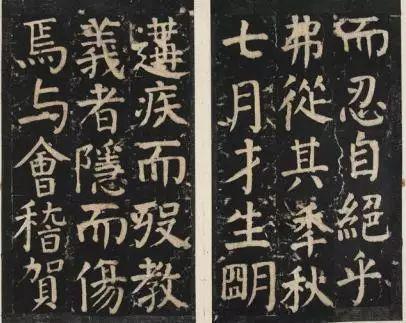 而忍自絕乎
弗從其季秋
七月才生朙
遘疾而歿教
義者隱而傷
焉与會稽賀